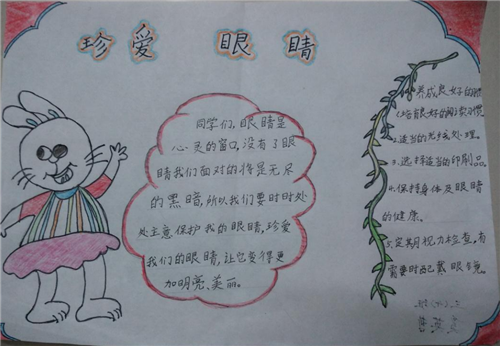 珍爱 眼睛
同学们,眼睛是
心灵的窗口,没有了眼
睛我们面对的将是无尽
的黑暗,所以我们要时时处
处主意保护我的眼睛,珍爱
我们的眼睛,让它变得更
加明亮、美丽。
养成良好的
(培良好的阅读习惯
2.适当的光线处理。
3.选择适当的印刷品。
4.保持身体及眼睛
的健康。
5.定期视力检查,有
需要时配戴眼镜。